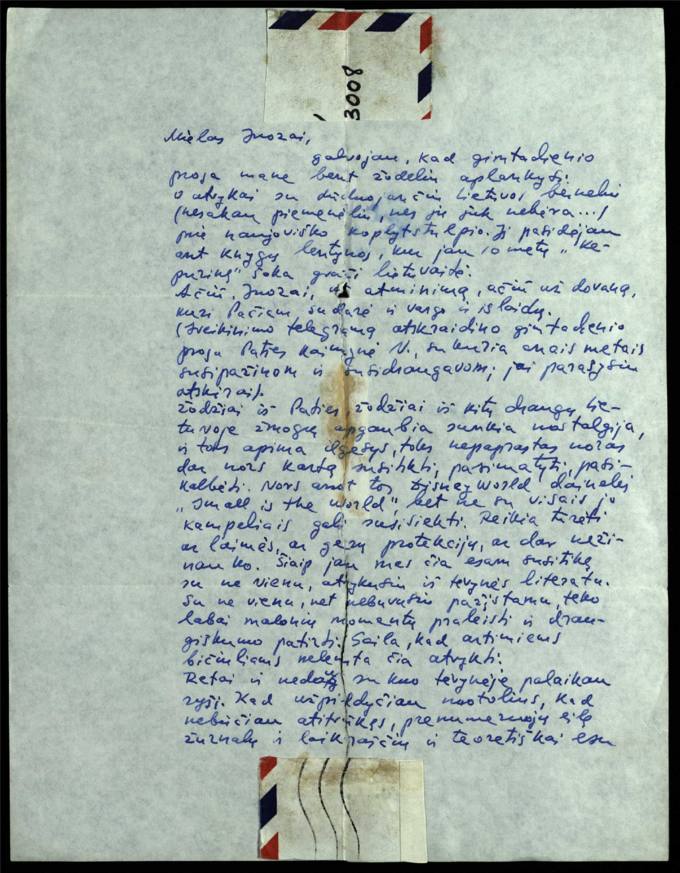 3008
Mielas Juozai,
galvojau, kad gimtadienio
proga mane bent žodeliu aplankyti.
O atvykai su dūduojančiu Lietuvos berneliu
(nesakau piemenėliu, nes jų juk nebėra...)
prie naujoviško koplytstulpio. Jį pasidėjau
ant knygų lentynos, kur jau 10 metų "Ke-
purinę" šoka graži lietuvaitė.
Ačiū, Juozai, už atminimą, ačiū už dovaną,
kuri Pačiam sudarė ir vargo ir išlaidų.
(Sveikinimo telegramą atskraidino gimtadienio
proga Paties kaimynė N., su kuria anais metais
susipažinom ir susidraugavom; jai parašysiu
atskirai).
Žodžiai iš Paties, žodžiai iš kitų draugų Lie-
tuvoje žmogų apgaubia sunkia nostalgija,
ir toks apima ilgesys, toks nepaprastas noras
dar nors kartą susitikti, pasimatyti, pasi-
kalbėti. Nors anot tos Disney World dainelės
"Small is the world", bet ne su visais jo
kampeliais gali susisiekti. Reikia turėti
ar laimės, ar gerų protekcijų, ar dar neži-
nau ko. Šiaip jau mes čia esam susitikę
su ne vienu, atvykusiu iš tėvynės literatu.
Su ne vienu, net nebuvusiu pažįstamu, teko
labai malonių momentų praleisti ir drau-
giškumo patirti. Gaila, kad artimiems
bičiuliams nelemta čia atvykti.
Retai ir nedaug su kuo tėvynėje palaikau
ryšį. Kad užpildyčiau nuotolius, kad
nebūčiau atitrūkęs, prenumeruoju eilę
žurnalų ir laikraščių ir teoretiškai esu